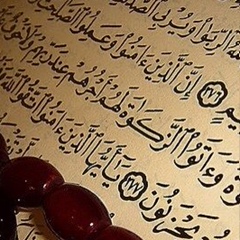 ٱللَّهُ ٱلرِّبَوٰا۟ وَيُرْبِى ٱلصَّ
يمٍ ٢٧٦ إِنَّ ٱلَّذِينَ ءَامَنُوا۟ وَعَمِلُوا۟ ٱلصَّٰلِحَٰ
وٰةَ وَءَاتَوُا۟ ٱلزَّكَوٰةَ لَهُمْ أَجْرُهُمْ عِندَ رَبِّهِمْ وَلَا خَوْفٌ
يَحْزَنُونَ ٢٧٧ يَٰٓأَيُّهَا ٱلَّذِينَ ءَامَنُوا۟ ٱتَّقُوا۟ ٱللَّهَ